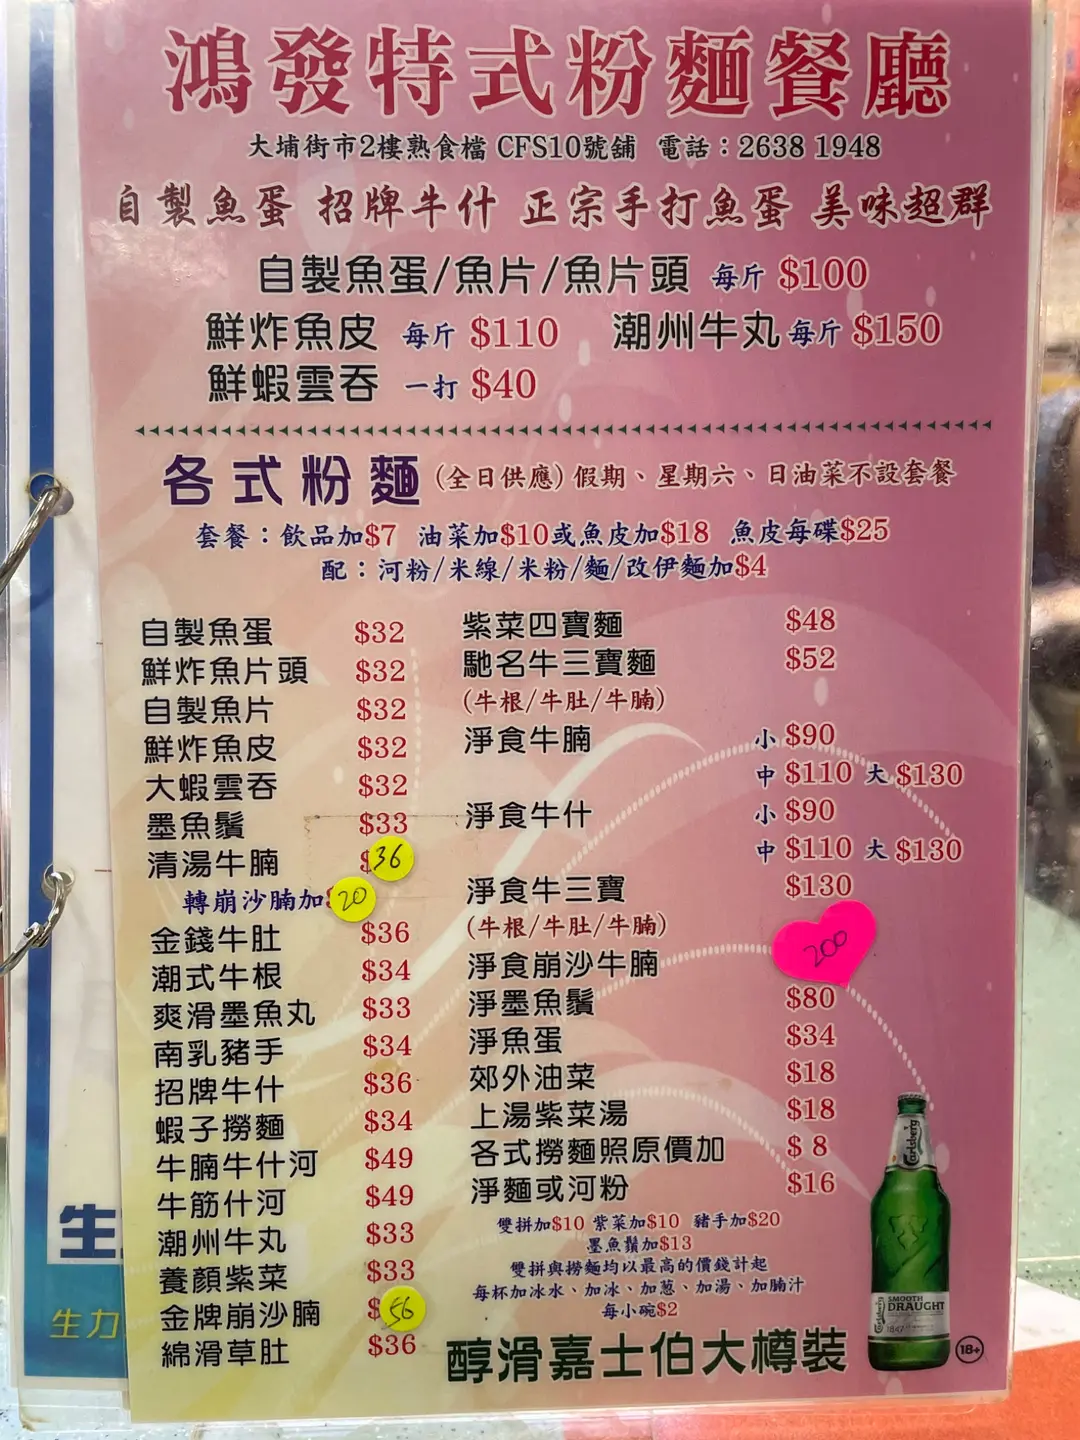 鴻發特式粉麵餐廳
大埔街市2樓熟食檔 CFS10號舖 電話：2638 1948
自製魚蛋 招牌牛什 正宗手打魚蛋 美味超群
自製魚蛋/魚片/魚片頭 每斤 $100
鮮炸魚皮 每斤 $110 潮州牛丸 每斤 $150
鮮蝦雲吞 一打 $40
各式粉麵 (全日供應) 假期、星期六、日油菜不設套餐
套餐：飲品加$7 油菜加$10或魚皮加$18 魚皮每碟$25
配：河粉/米線/米粉/麵/改伊麵加$4
自製魚蛋 $32
鮮炸魚片頭 $32
自製魚片 $32
鮮炸魚皮 $32
大蝦雲吞 $32
墨魚鬚 $33
清湯牛腩 $36
轉崩沙腩加$20
金錢牛肚 $36
潮式牛根 $34
爽滑墨魚丸 $33
南乳豬手 $34
招牌牛什 $36
蝦子撈麵 $34
牛腩牛什河 $49
牛筋什河 $49
潮州牛丸 $33
養顏紫菜 $33
金牌崩沙腩 $56
綿滑草肚 $36
紫菜四寶麵 $48
馳名牛三寶麵 $52
(牛根/牛肚/牛腩)
淨食牛腩 小 $90
中 $110 大 $130
淨食牛什 小 $90
中 $110 大 $130
淨食牛三寶 $130
(牛根/牛肚/牛腩)
淨食崩沙牛腩 200
淨墨魚鬚 $80
淨魚蛋 $34
郊外油菜 $18
上湯紫菜湯 $18
各式撈麵照原價加 $ 8
淨麵或河粉 $16
雙拼加$10 紫菜加$10 豬手加$20
墨魚鬚加$13
雙拼與撈麵均以最高的價錢計起
每杯加冰水、加冰、加蔥、加湯、加腩汁
每小碗$2
醇滑嘉士伯大樽裝
Carlsberg
Carlsberg
SMOOTH
DRAUGHT
1847
18+
生
生力